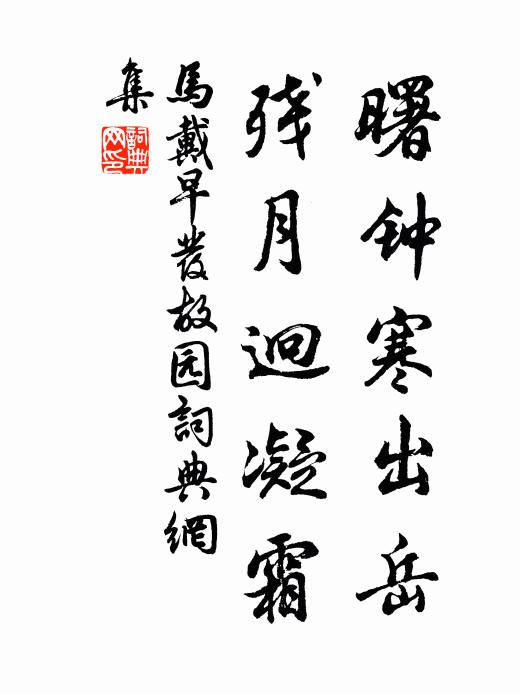 曙钟寒出岳
残月迥凝霜
馬戴早發故园詞典網
集
詞典
网印